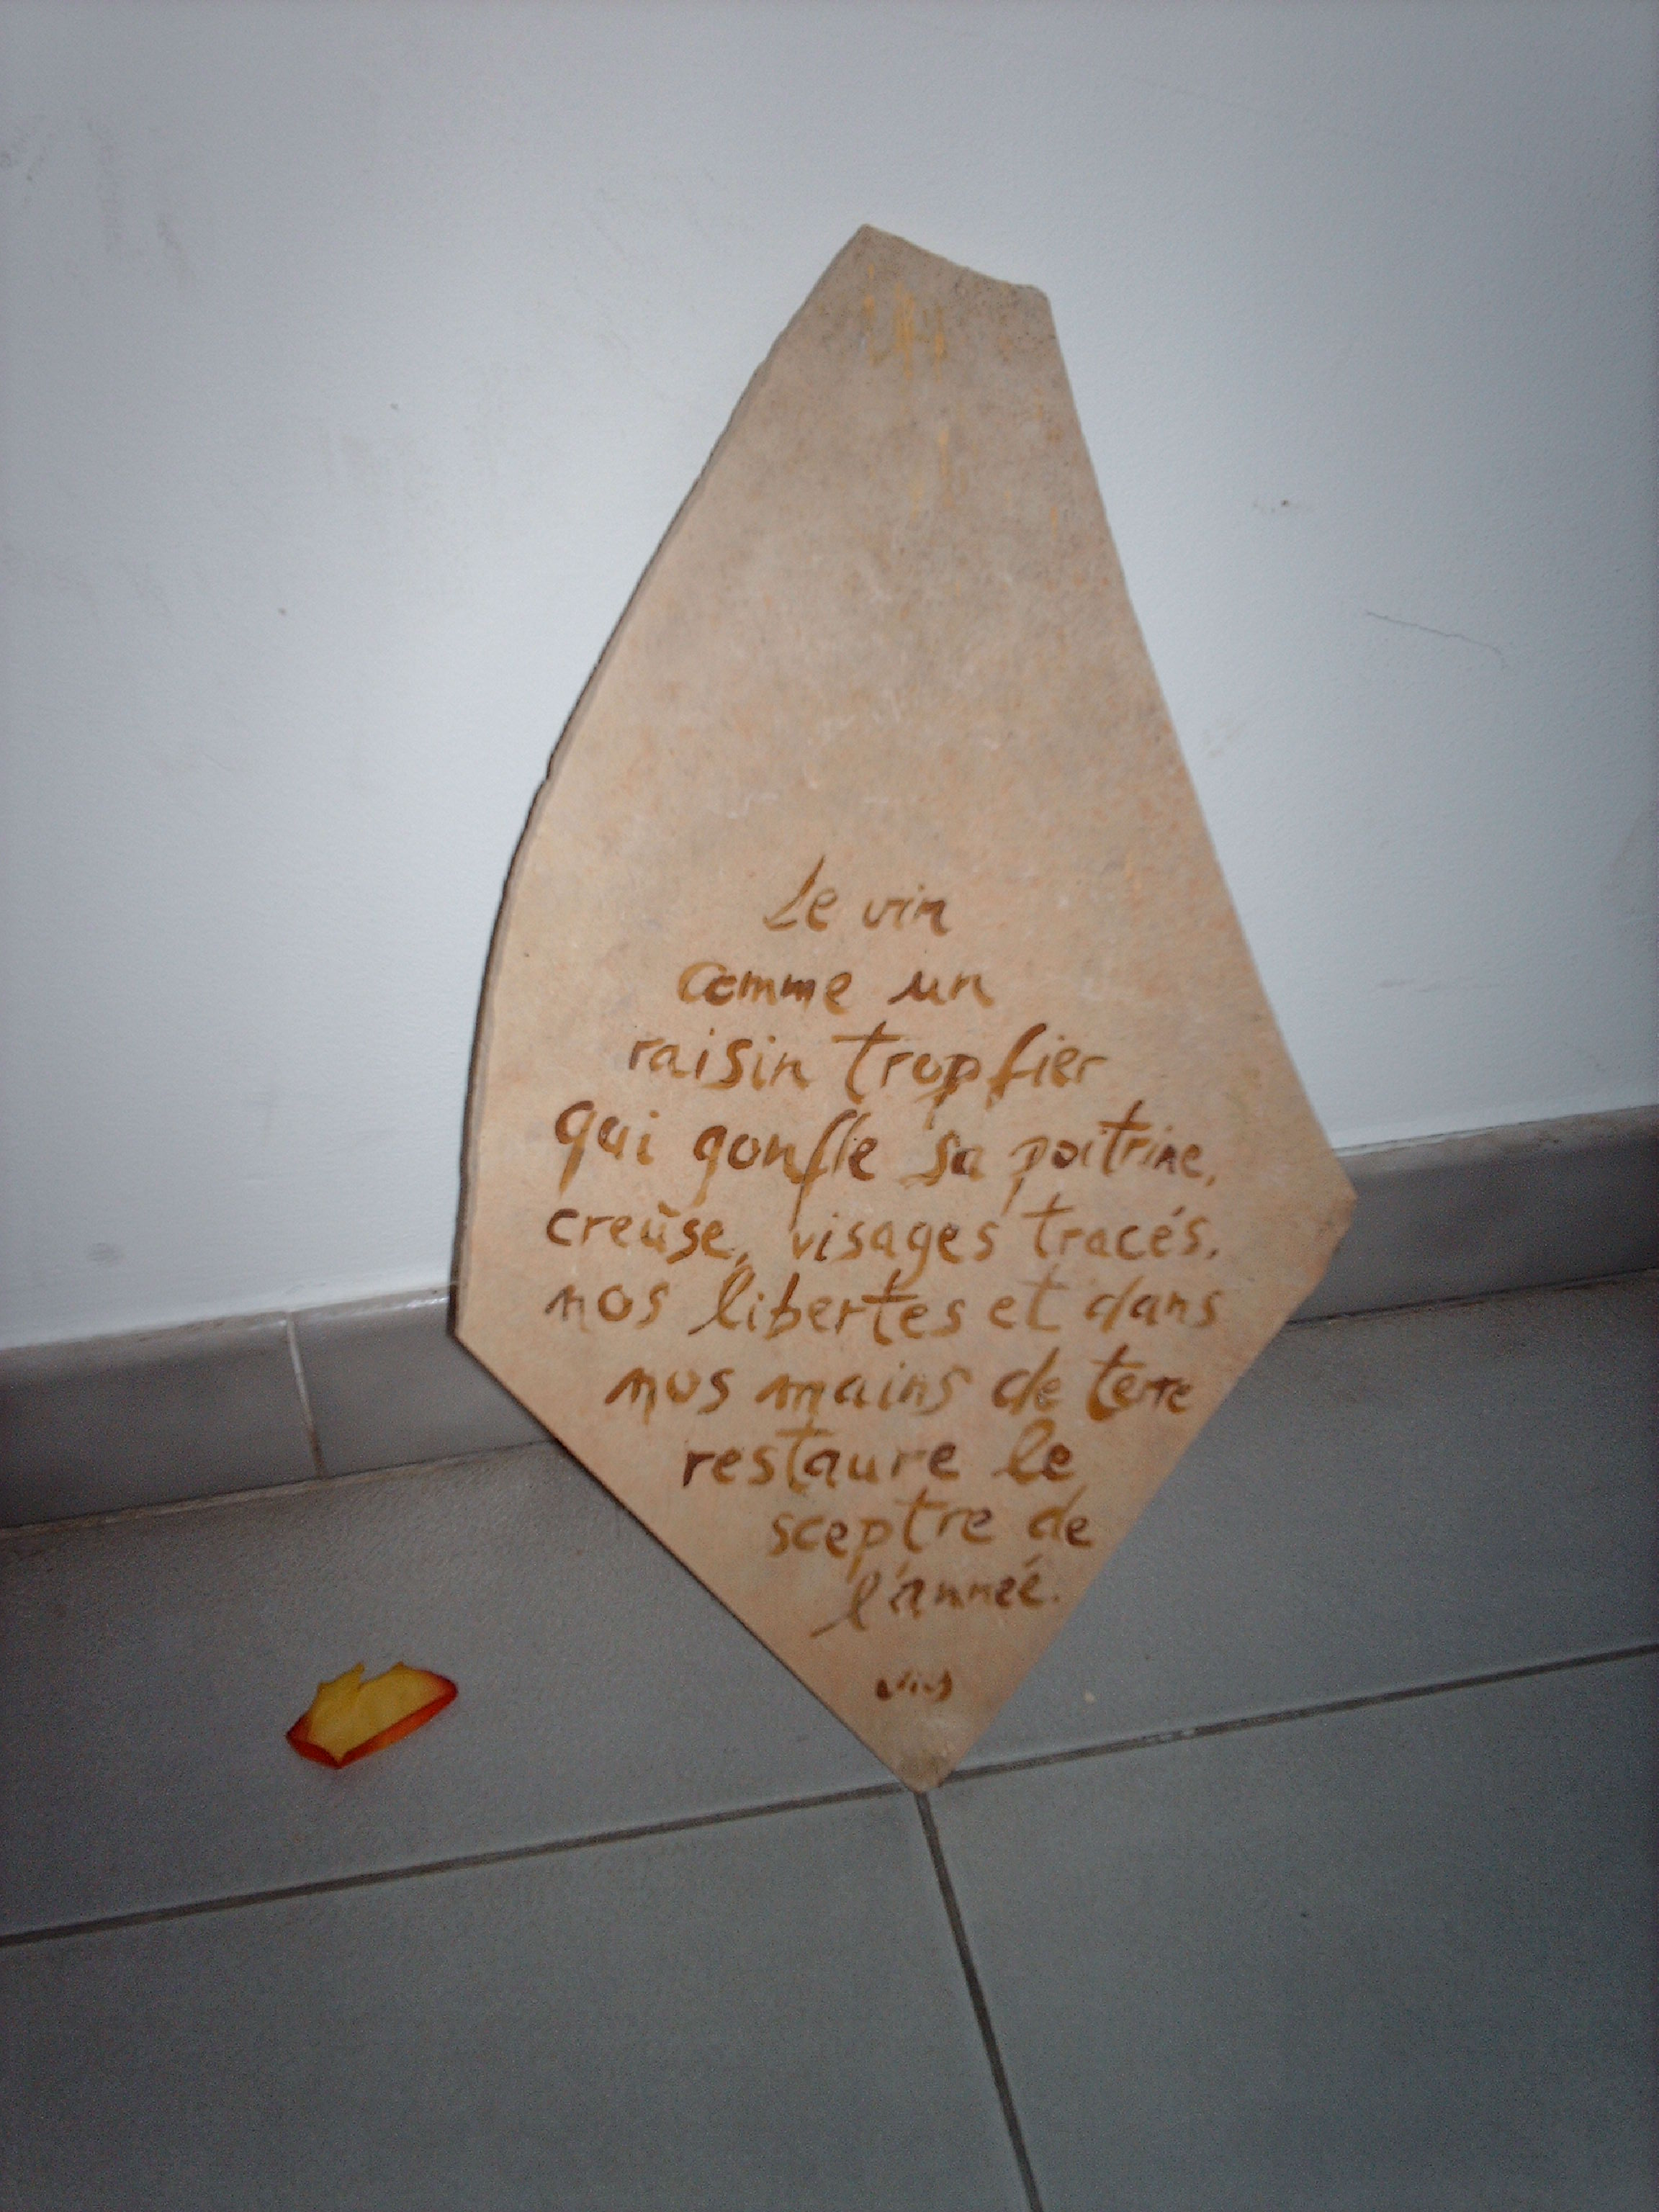 Le vin
comme un
raisin trop fier
qui gonfle sa poitrine,
creuse, visages tracés,
nos libertes et dans
nos mains de terre
restaure le
sceptre de
l'année.